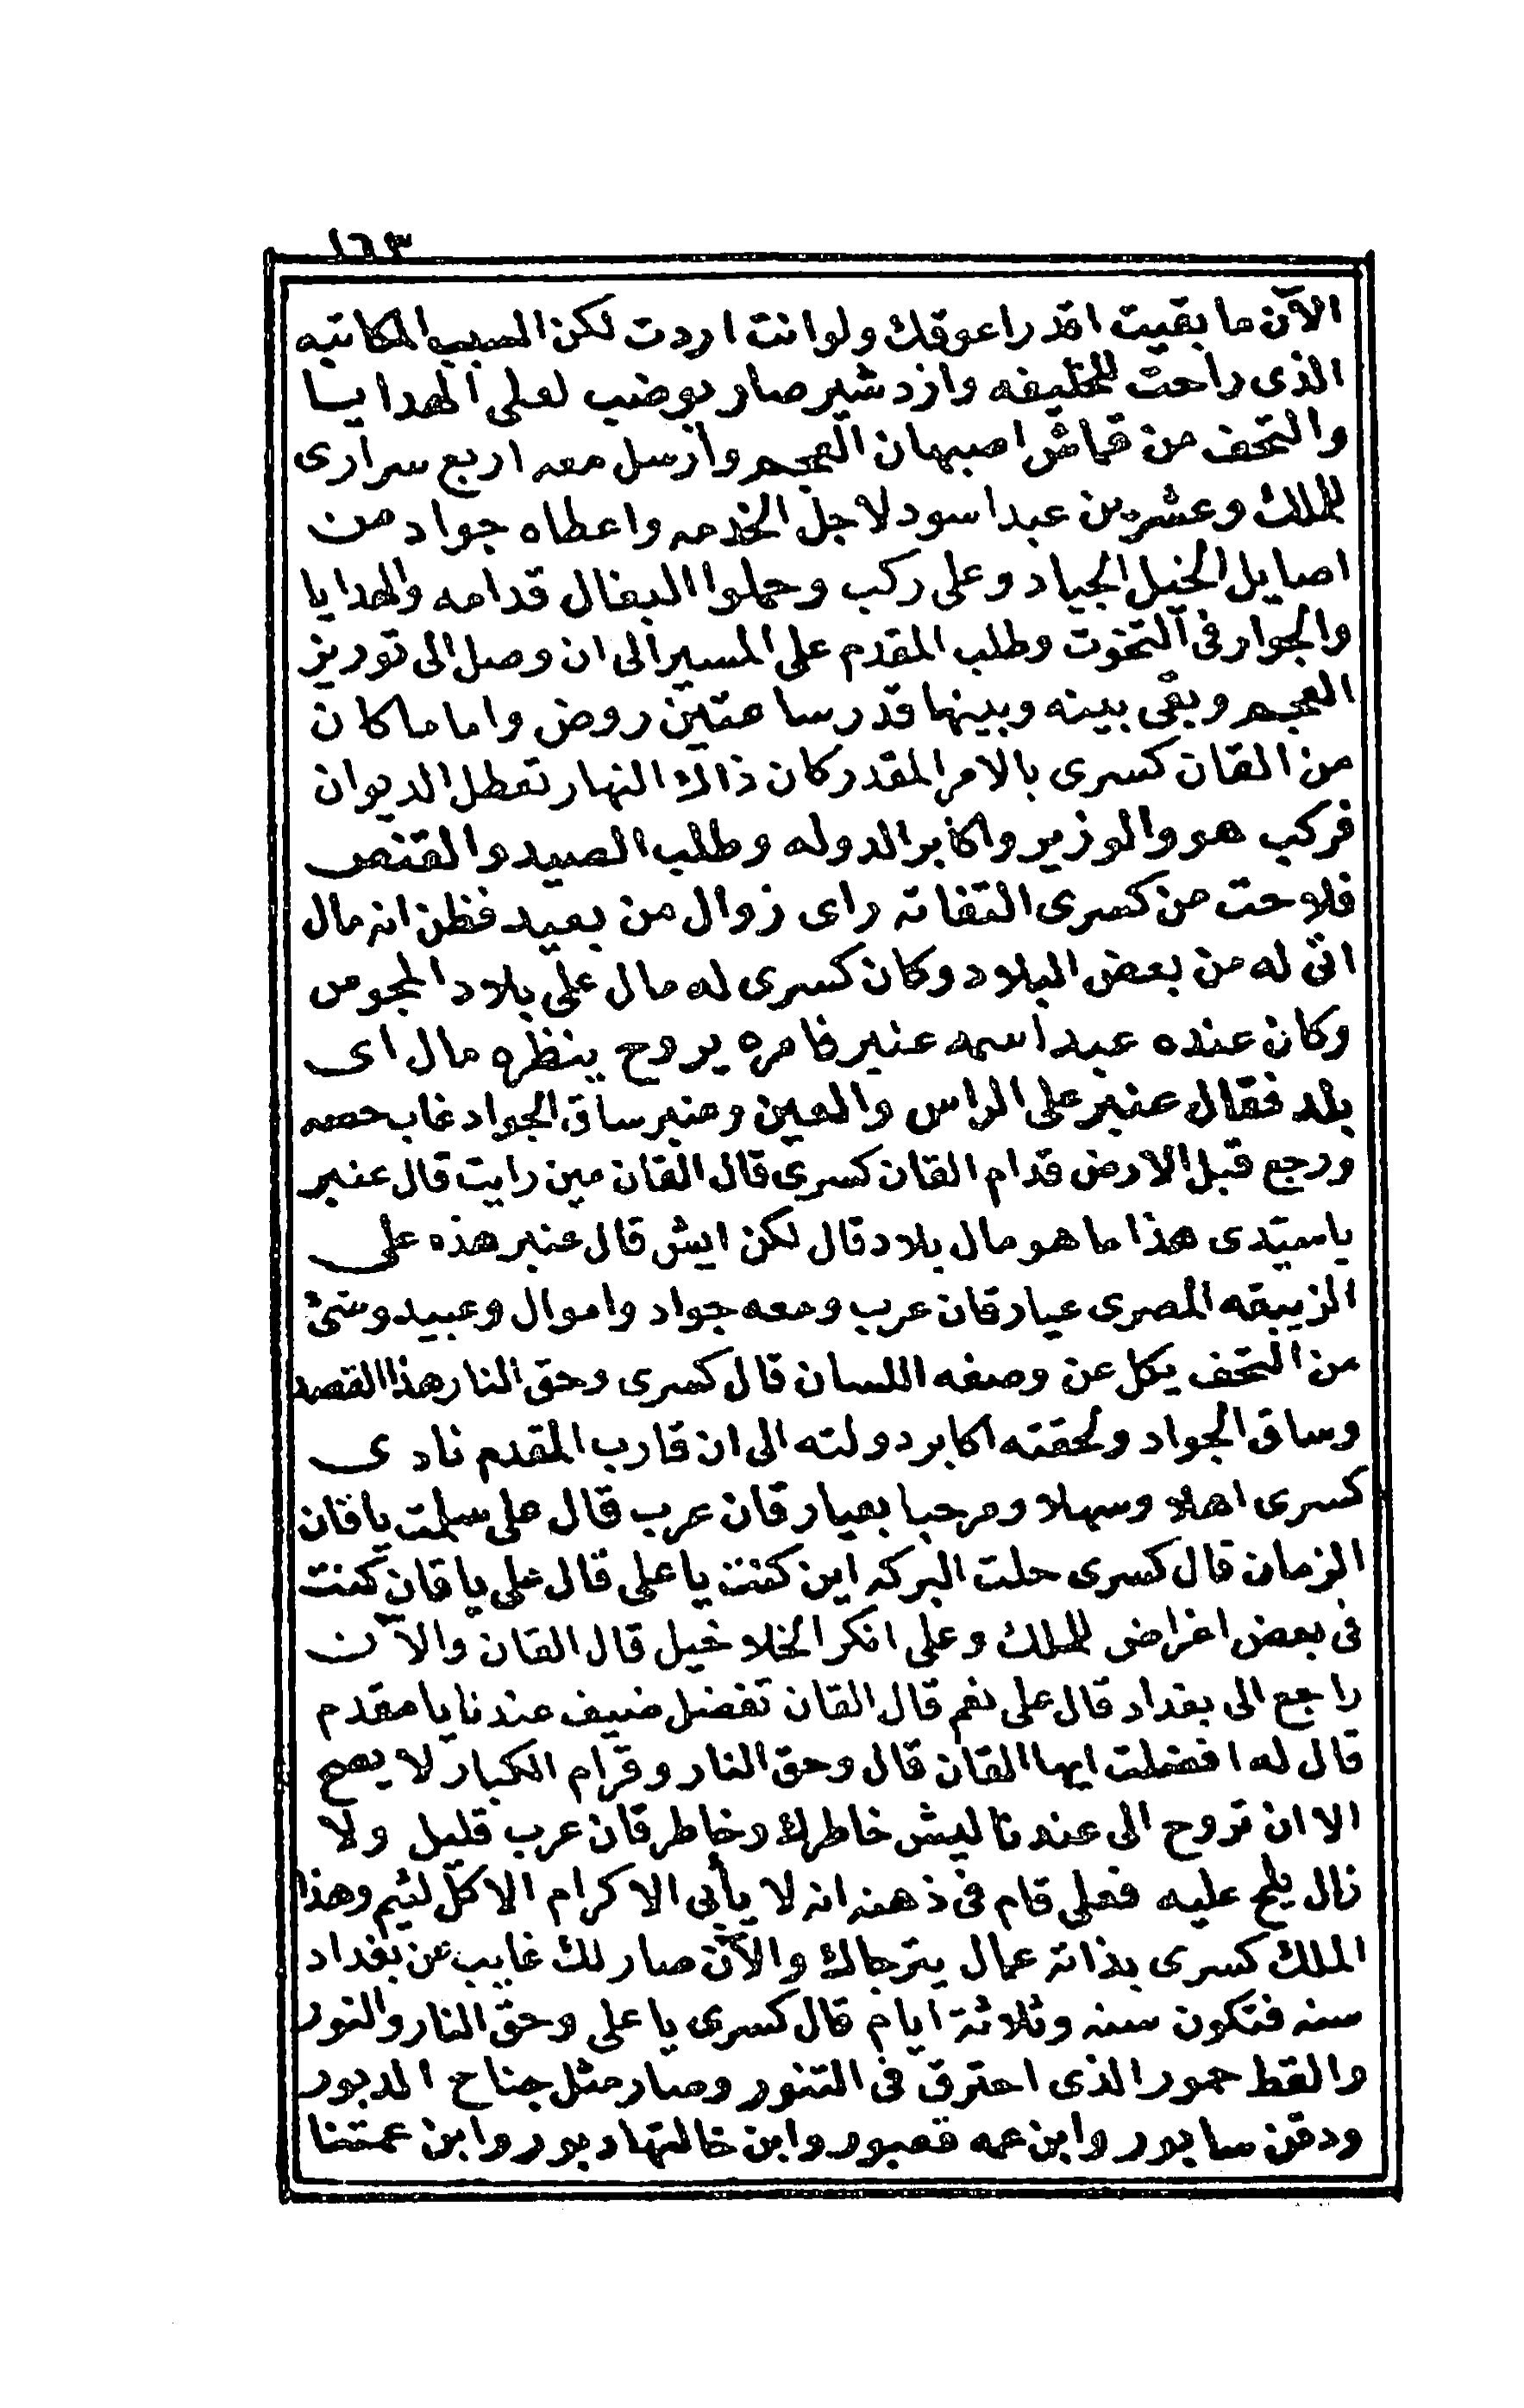 ١٦٣
الآن ما بقيت اقدر اعوقك ولو انت اردت لكن السبب المكاتبه
الذى راحت للخليفه وازدشير صار يوضب لعلى الهدايا
والتحف من قماش اصبهان العجم وارسل معه اربع سرارى
للملك وعشرين عبد اسود لاجل الخدمه واعطاه جواد من
اصايل الخيل الجياد وعلى ركب وحملوا البغال قدامه والهدايا
والجوار فى التخوت وطلب المقدم على المسير الى ان وصل الى توريز
العجم وبقى بينه وبينها قدر ساعتين روض واما ما كان
من القان كسرى بالامر المقدر كان ذاك النهار تعطل الديوان
فركب هو والوزير واكابر الدوله وطلب الصيد والقنص
فلاحت من كسرى التفاته راى زوال من بعيد فظن انه مال
اتى له من بعض البلاد وكان كسرى له مال على بلاد المجوس
وكان عنده عبد اسمه عنبر فامره يروح ينظره مال اى
بلد فقال عنبر على الراس والعين وعنبر ساق الجواد غاب حصه
ورجع قبل الارض قدام القان كسرى قال القان مين رايت قال عنبر
ياسيّدى هذا ما هو مال بلاد قال لكن ايش قال عنبر هذه على
الزيبقه المصرى عيار قان عرب ومعه جواد واموال وعبيد وشئ
من التحف يكل عن وصفه اللسان قال كسرى وحق النار هذا القصد
وساق الجواد ولحقته اكابر دولته الى ان قارب المقدم نادى
كسرى اهلا وسهلا ومرحبا بعيار قان عرب قال على سلمت ياقان
الزمان قال كسرى حلت البركه اين كنت يا على قال على يا قان كنت
فى بعض اغراض للملك وعلى انكر الخلاخيل قال القان والآن
راجع الى بغداد قال على نعم قال القان تفضل ضيف عندنا يا مقدم
قال له افضلت ايها القان قال وحق النار وقرام الكبار لا يصح
الا ان تروح الى عندنا ليش خاطرك وخاطر قان عرب قليل ولا
زال يلح عليه فعلى قام فى ذهنه انه لا يأبى الاكرام الا كلّ لئيم وهذا
الملك كسرى بذاته عمال يترجاك والآن صار لك غايب عن بغداد
سنه فتكون سنه وثلاثة ايام قال كسرى يا على وحق النار والنور
والقط حمور الذى احترق فى التنور وصار مثل جناح الدبور
ودقن سابور وابن عمه قعبور وابن خالتها دبور وابن عمتنا